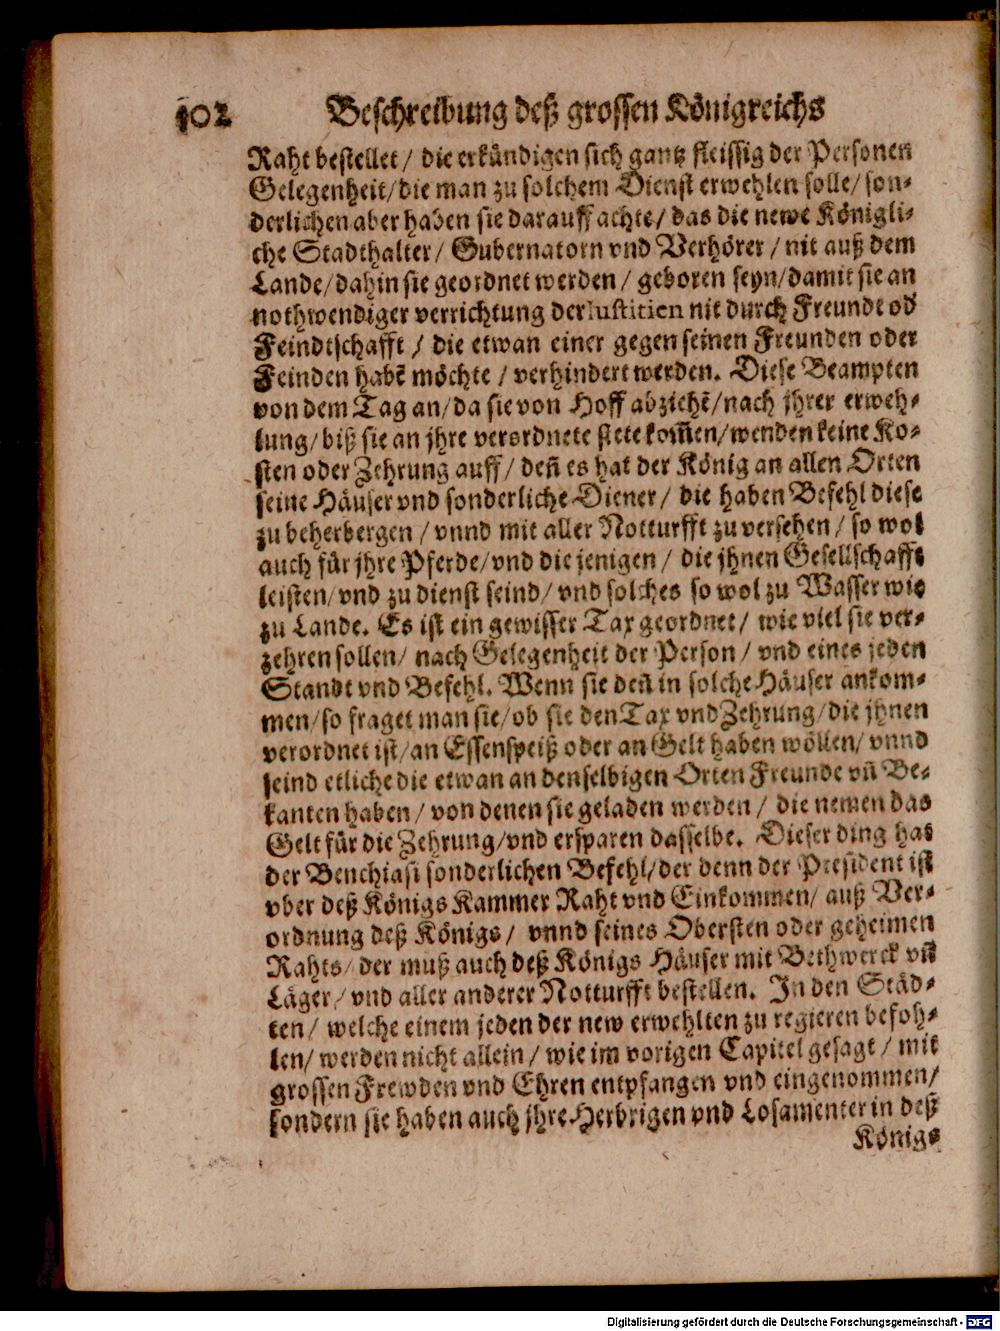 102 Beschreibung deß grossen Königreichs
Raht bestellet/ die erkündigen sich gantz fleissig der Personen
Gelegenheit/die man zu solchem Dienst erwehlen solle/ son-
derlichen aber haben sie darauff achte/ das die newe Königli-
che Stadthalter/ Gubernatorn vnd Verhörer/ nit auß dem
Lande/dahin sie geordnet werden/ geboren seyn/damit sie an
nothwendiger verrichtung der Iustitien nit durch Freundt od
Feindtschafft/ die etwan einer gegen seinen Freunden oder
Feinden habē möchte/ verhindert werden. Diese Beampten
von dem Tag an/da sie von Hoff abziehē/nach jhrer erweh-
lung/biß sie an jhre verordnete stete kom̃en/wenden keine Ko-
sten oder Zehrung auff/ deñ es hat der König an allen Orten
seine Häuser vnd sonderliche Diener/ die haben Befehl diese
zu beherbergen/ vnnd mit aller Notturfft zu versehen/ so wol
auch für jhre Pferde/vnd die jenigen/ die jhnen Gesellschafft
leisten/vnd zu dienst seind/ vnd solches so wol zu Wasser wie
zu Lande. Es ist ein gewisser Tax geordnet/ wie viel sie ver-
zehren sollen/ nach Gelegenheit der Person/ vnd eines jeden
Standt vnd Befehl. Wenn sie deñ in solche Häuser ankom-
men/so fraget man sie/ob sie den Tax vnd Zehrung/die jhnen
verordnet ist/an Essenspeiß oder an Gelt haben wöllen/ vnnd
seind etliche die etwan an denselbigen Orten Freunde vñ Be-
kanten haben/ von denen sie geladen werden/ die nemen das
Gelt für die Zehrung/vnd ersparen dasselbe. Dieser ding hat
der Benchiasi sonderlichen Befehl/der denn der President ist
vber deß Königs Kammer Raht vnd Einkommen/ auß Ver-
ordnung deß Königs/ vnnd seines Obersten oder geheimen
Rahts/ der muß auch deß Königs Häuser mit Bethwerck vñ
Läger/ vnd aller anderer Notturfft bestellen. In den Städ-
ten/ welche einem jeden der new erwehlten zu regieren befoh-
len/ werden nicht allein/ wie im vorigen Capitel gesagt/ mit
grossen Frewden vnd Ehren entpfangen vnd eingenommen/
sondern sie haben auch jhre Herbrigen vnd Losamenter in deß
Königs
Digitalisierung gefördert durch die Deutsche Forschungsgemeinschaft - DFG